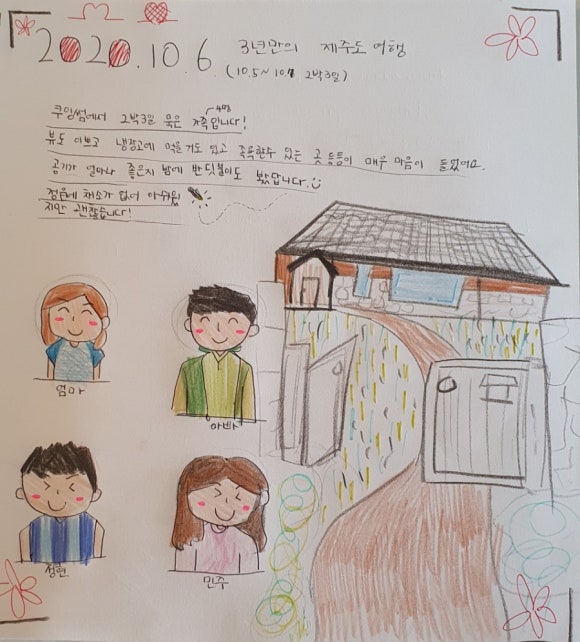 2020.10.6 3년만의 제주도 여행
(10.5~10.7 2박3일)
4명
쿠잉썸에서 2박3일 묵은 가족입니다!
뷰도 이쁘고 냉장고에 먹을거도 있고 족욕할수 있는 곳 등등이 매우 마음이 들었어요.
공기가 얼마나 좋은지 밤에 반딧불이도 봤답니다.
점심에 채소가 없어 아쉬웠
지만 괜찮습니다!
엄마
아빠
정현
민주